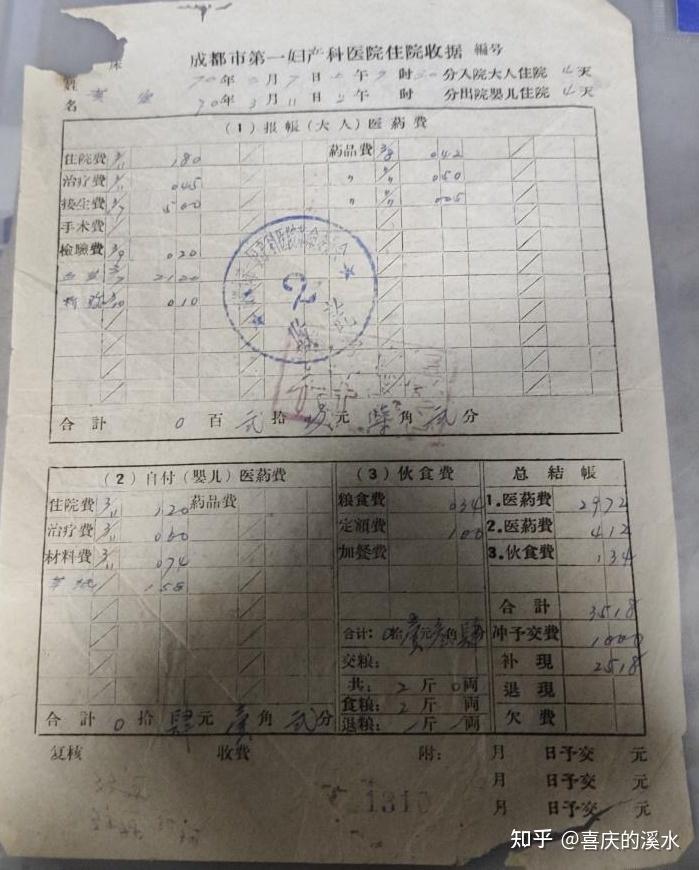 成都市第一妇产科医院住院收据 编号
姓 70年 月7日 午 时 分入院大人住院 4天
名 70年3月11日 午 时 分出院嬰儿住院 4天
(1)报帳(大人)医药費
住院費 3/11 180 药品費 3/8 042
治疗費 3/11 045 〃 〃 050
接生費 3/7 500 〃 〃 005
手术費
检驗費 3/9 020
2120
3/10 010
合計 0百贰拾 元 角贰分
(2)自付(嬰儿)医葯費
住院費 3/11 120 葯品費
治疗費 3/11 060
材料費 3/11 074
158
合計 0拾肆元壹角贰分
(3)伙食費
粮食費 034
定額費 100
加餐費
合計:0拾壹元 角肆分
交粮:
共: 2斤0両
食粮: 2斤 両
退粮: 斤 両
总結帳
1.医葯費 2972
2.医葯費 412
3.伙食費 134
合計 3518
冲予交費 1000
补現 2518
退現
欠費
复核 收費 附: 月 日予交 元
月 日予交 元
月 日予交 元
1310
知乎 @喜庆的溪水